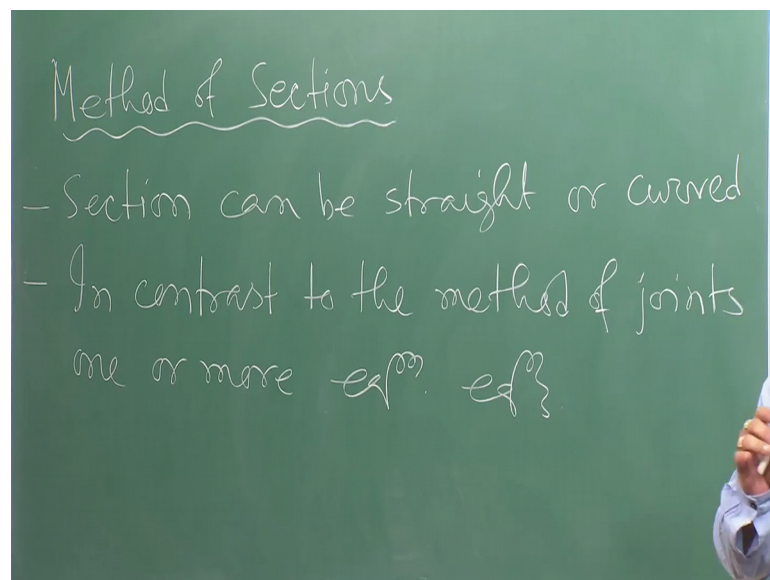 Method of Sections
- Section can be straight or curved
- In contrast to the method of joints
one or more eqm. eqs.